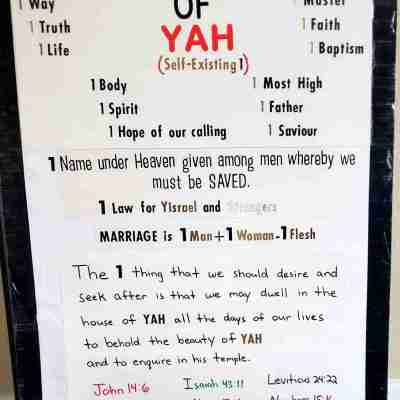 1 Way
OF
Master
1 Truth
YAH
1 Faith
1 Life
(Self-Existing 1)
1 Baptism
1 Body
1 Most High
1 Spirit
1 Father
1 Hope of our calling
1 Saviour
1 Name under Heaven given among men whereby we
must be SAVED.
1 Law for Yisrael and Strangers
MARRIAGE is 1 Man + 1 Woman - 1 Flesh
The 1 thing that we should desire and
seek after is that we may dwell in the
house of YAH all the days of our lives
to behold the beauty of YAH
and to enquire in his temple.
John 14:6
Isaiah 43:11
Leviticus 24:22